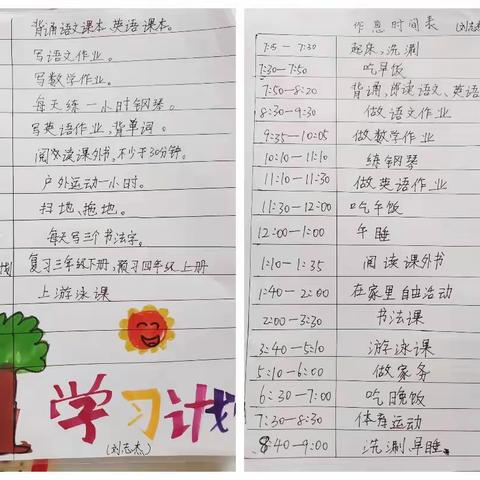 背诵语文课本、英语课本。
写语文作业。
写数学作业。
每天练一小时钢琴。
写英语作业,背单词。
阅读课外书,不少于30分钟。
户外运动一小时。
扫地、拖地。
每天写三个书法字。
划
复习三年级下册,预习四年级上册
上游泳课
学习计划
(刘志杰)
作息时间表 (刘志杰)
7:15-7:30 起床,洗漱
7:30-7:50 吃早饭
7:50-8:20 背诵,阅读语文、英语
8:30-9:30 做语文作业
9:35-10:05 做数学作业
10:10-11:10 练钢琴
11:10-11:30 做英语作业
11:30-12:00 吃午饭
12:00-1:00 午睡
1:10-1:35 阅读课外书
1:40-2:00 在家里自由活动
2:00-3:30 书法课
3:40-5:10 游泳课
5:10-6:00 做家务
6:30-7:00 吃晚饭
7:30-8:30 体育运动
8:40-9:00 洗漱,早睡。